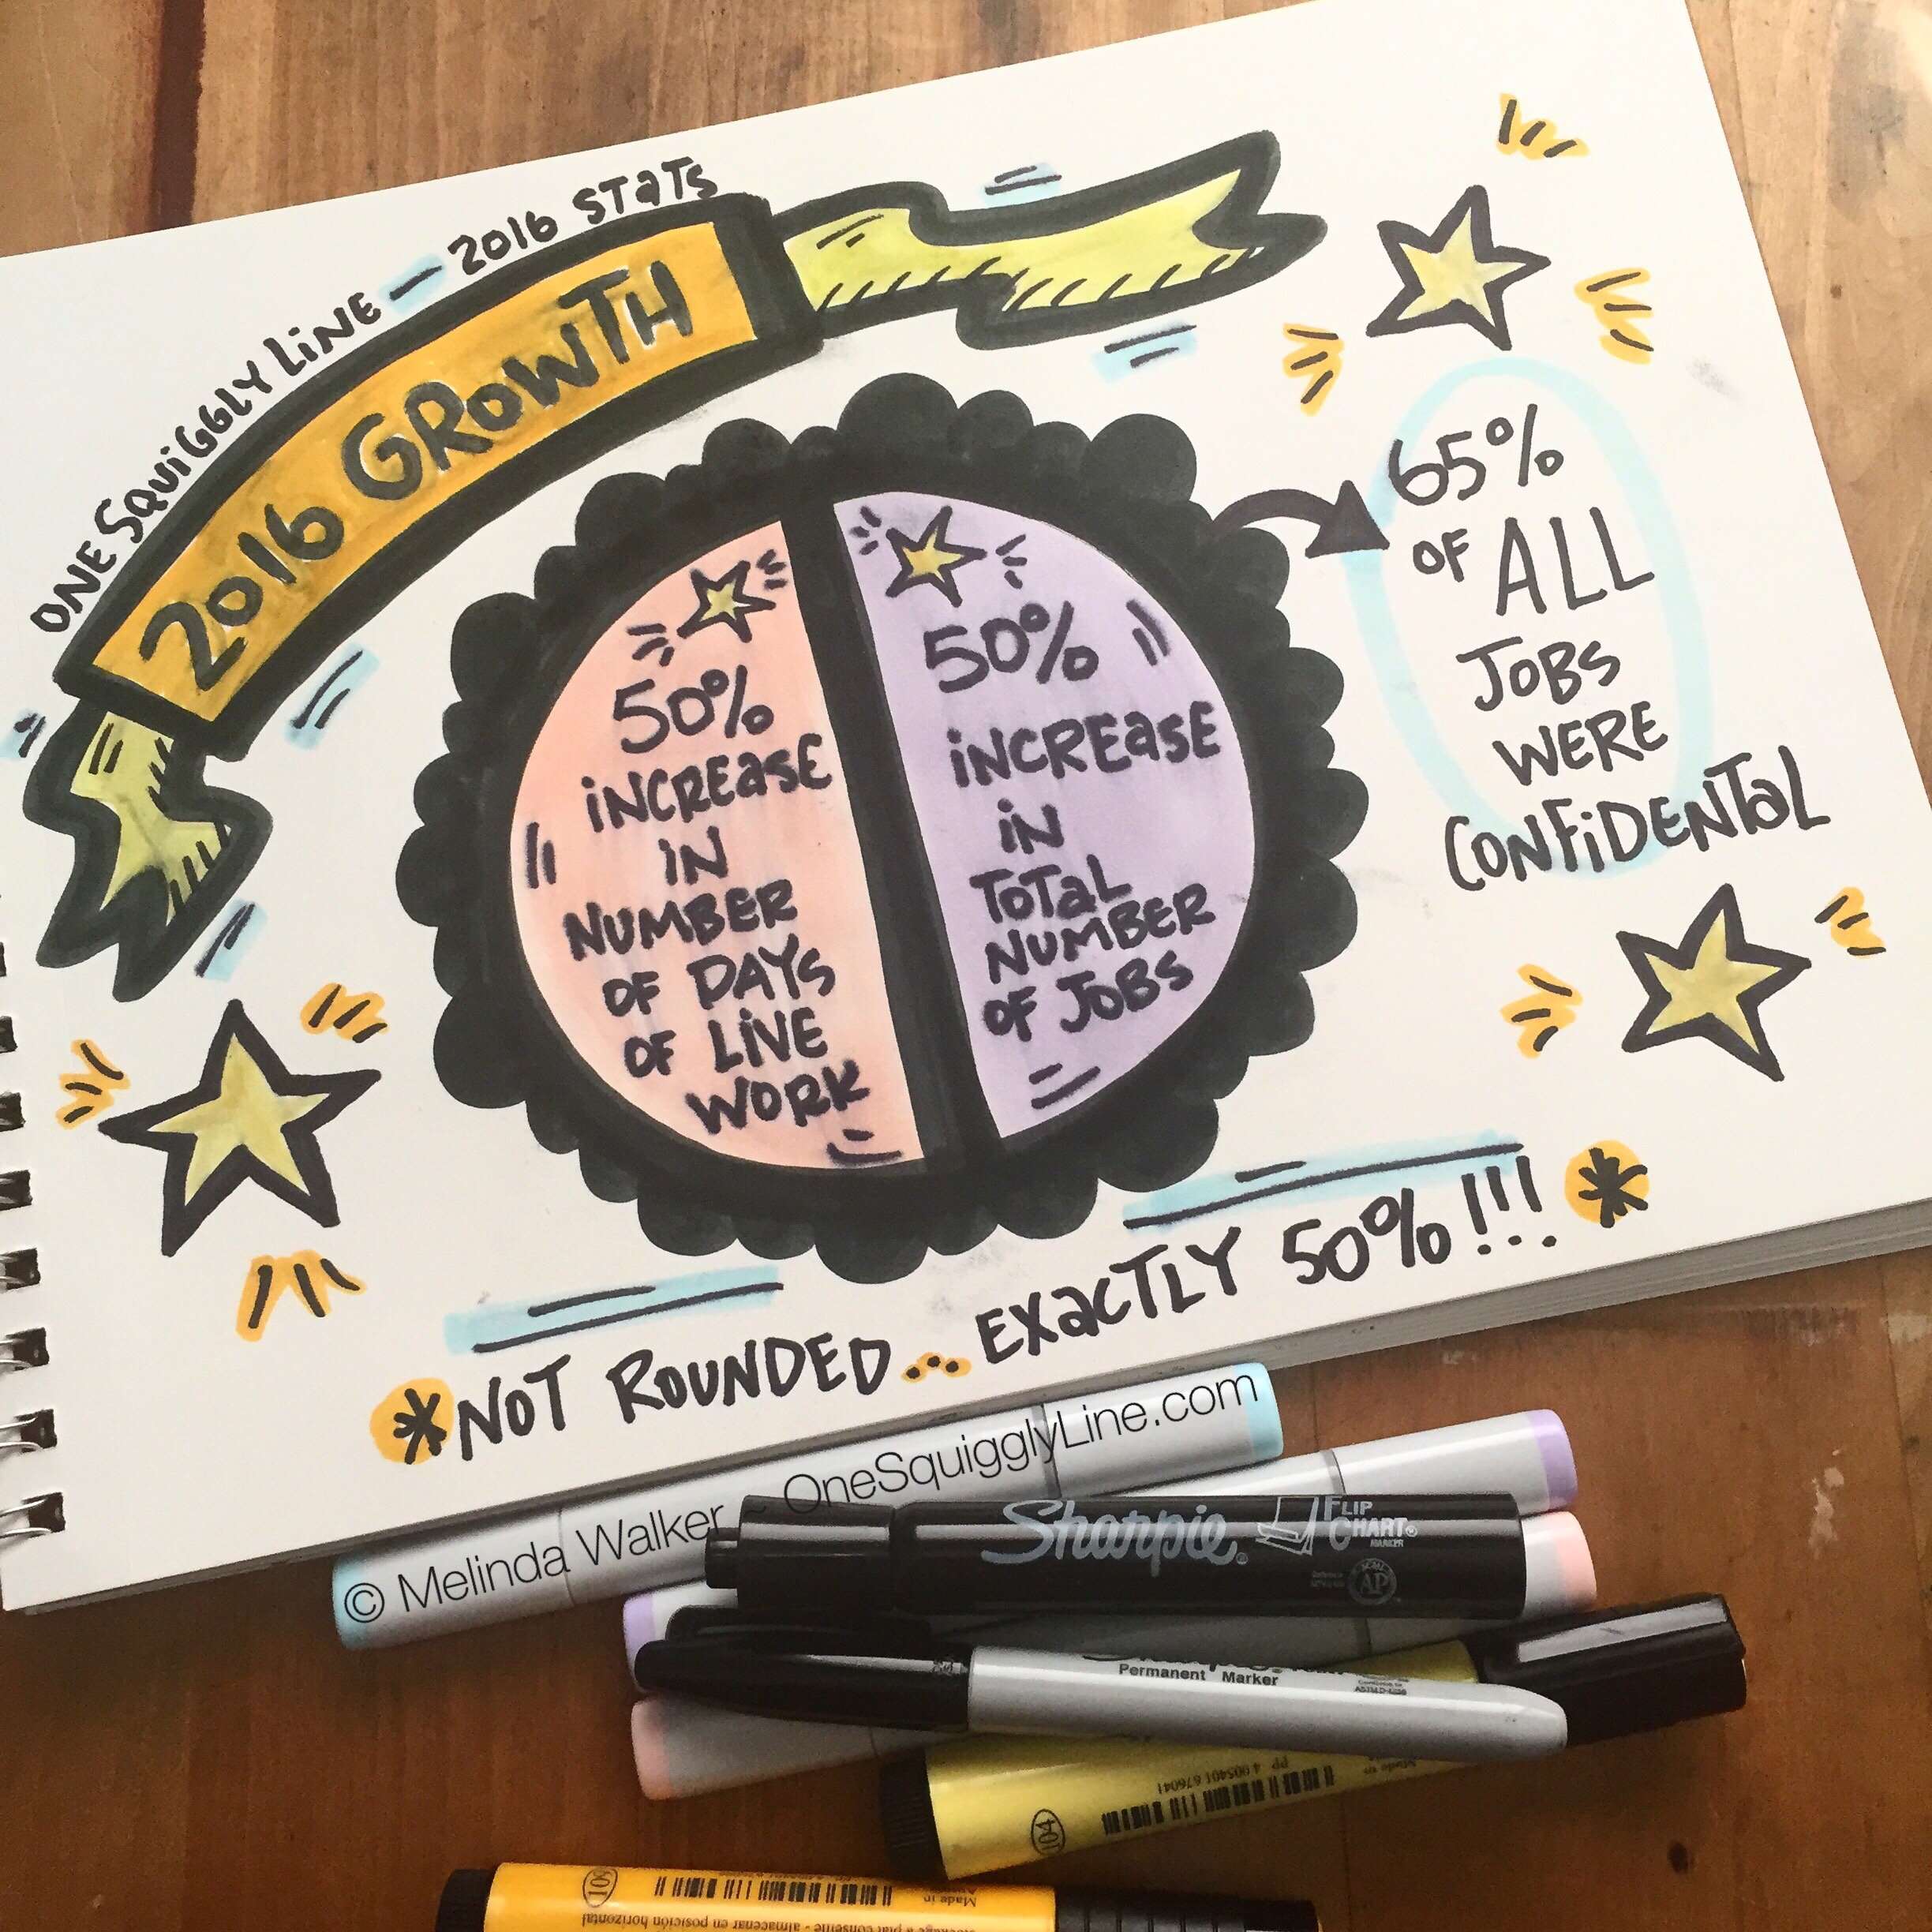 ONE SQUiGGLY LiNE - 2016 STaTS
2016 GROWTH
50%
iNCREaSE
iN
NUMBER
OF DAYS
OF LiVE
WORK
50%
iNCREaSE
iN
ToTaL
NUMBER
OF JOBS
65%
OF ALL
JOBS
WERE
CONFiDENTaL
*NOT ROUNDED... EXaCTLY 50%!!! *
© Melinda Walker - OneSquigglyLine.com
Sharpie® FLIP CHART®
MARKER
AP
Permanent Marker
PP 4 005401 676041
104
109
Made in
almacenar en posición horizontal